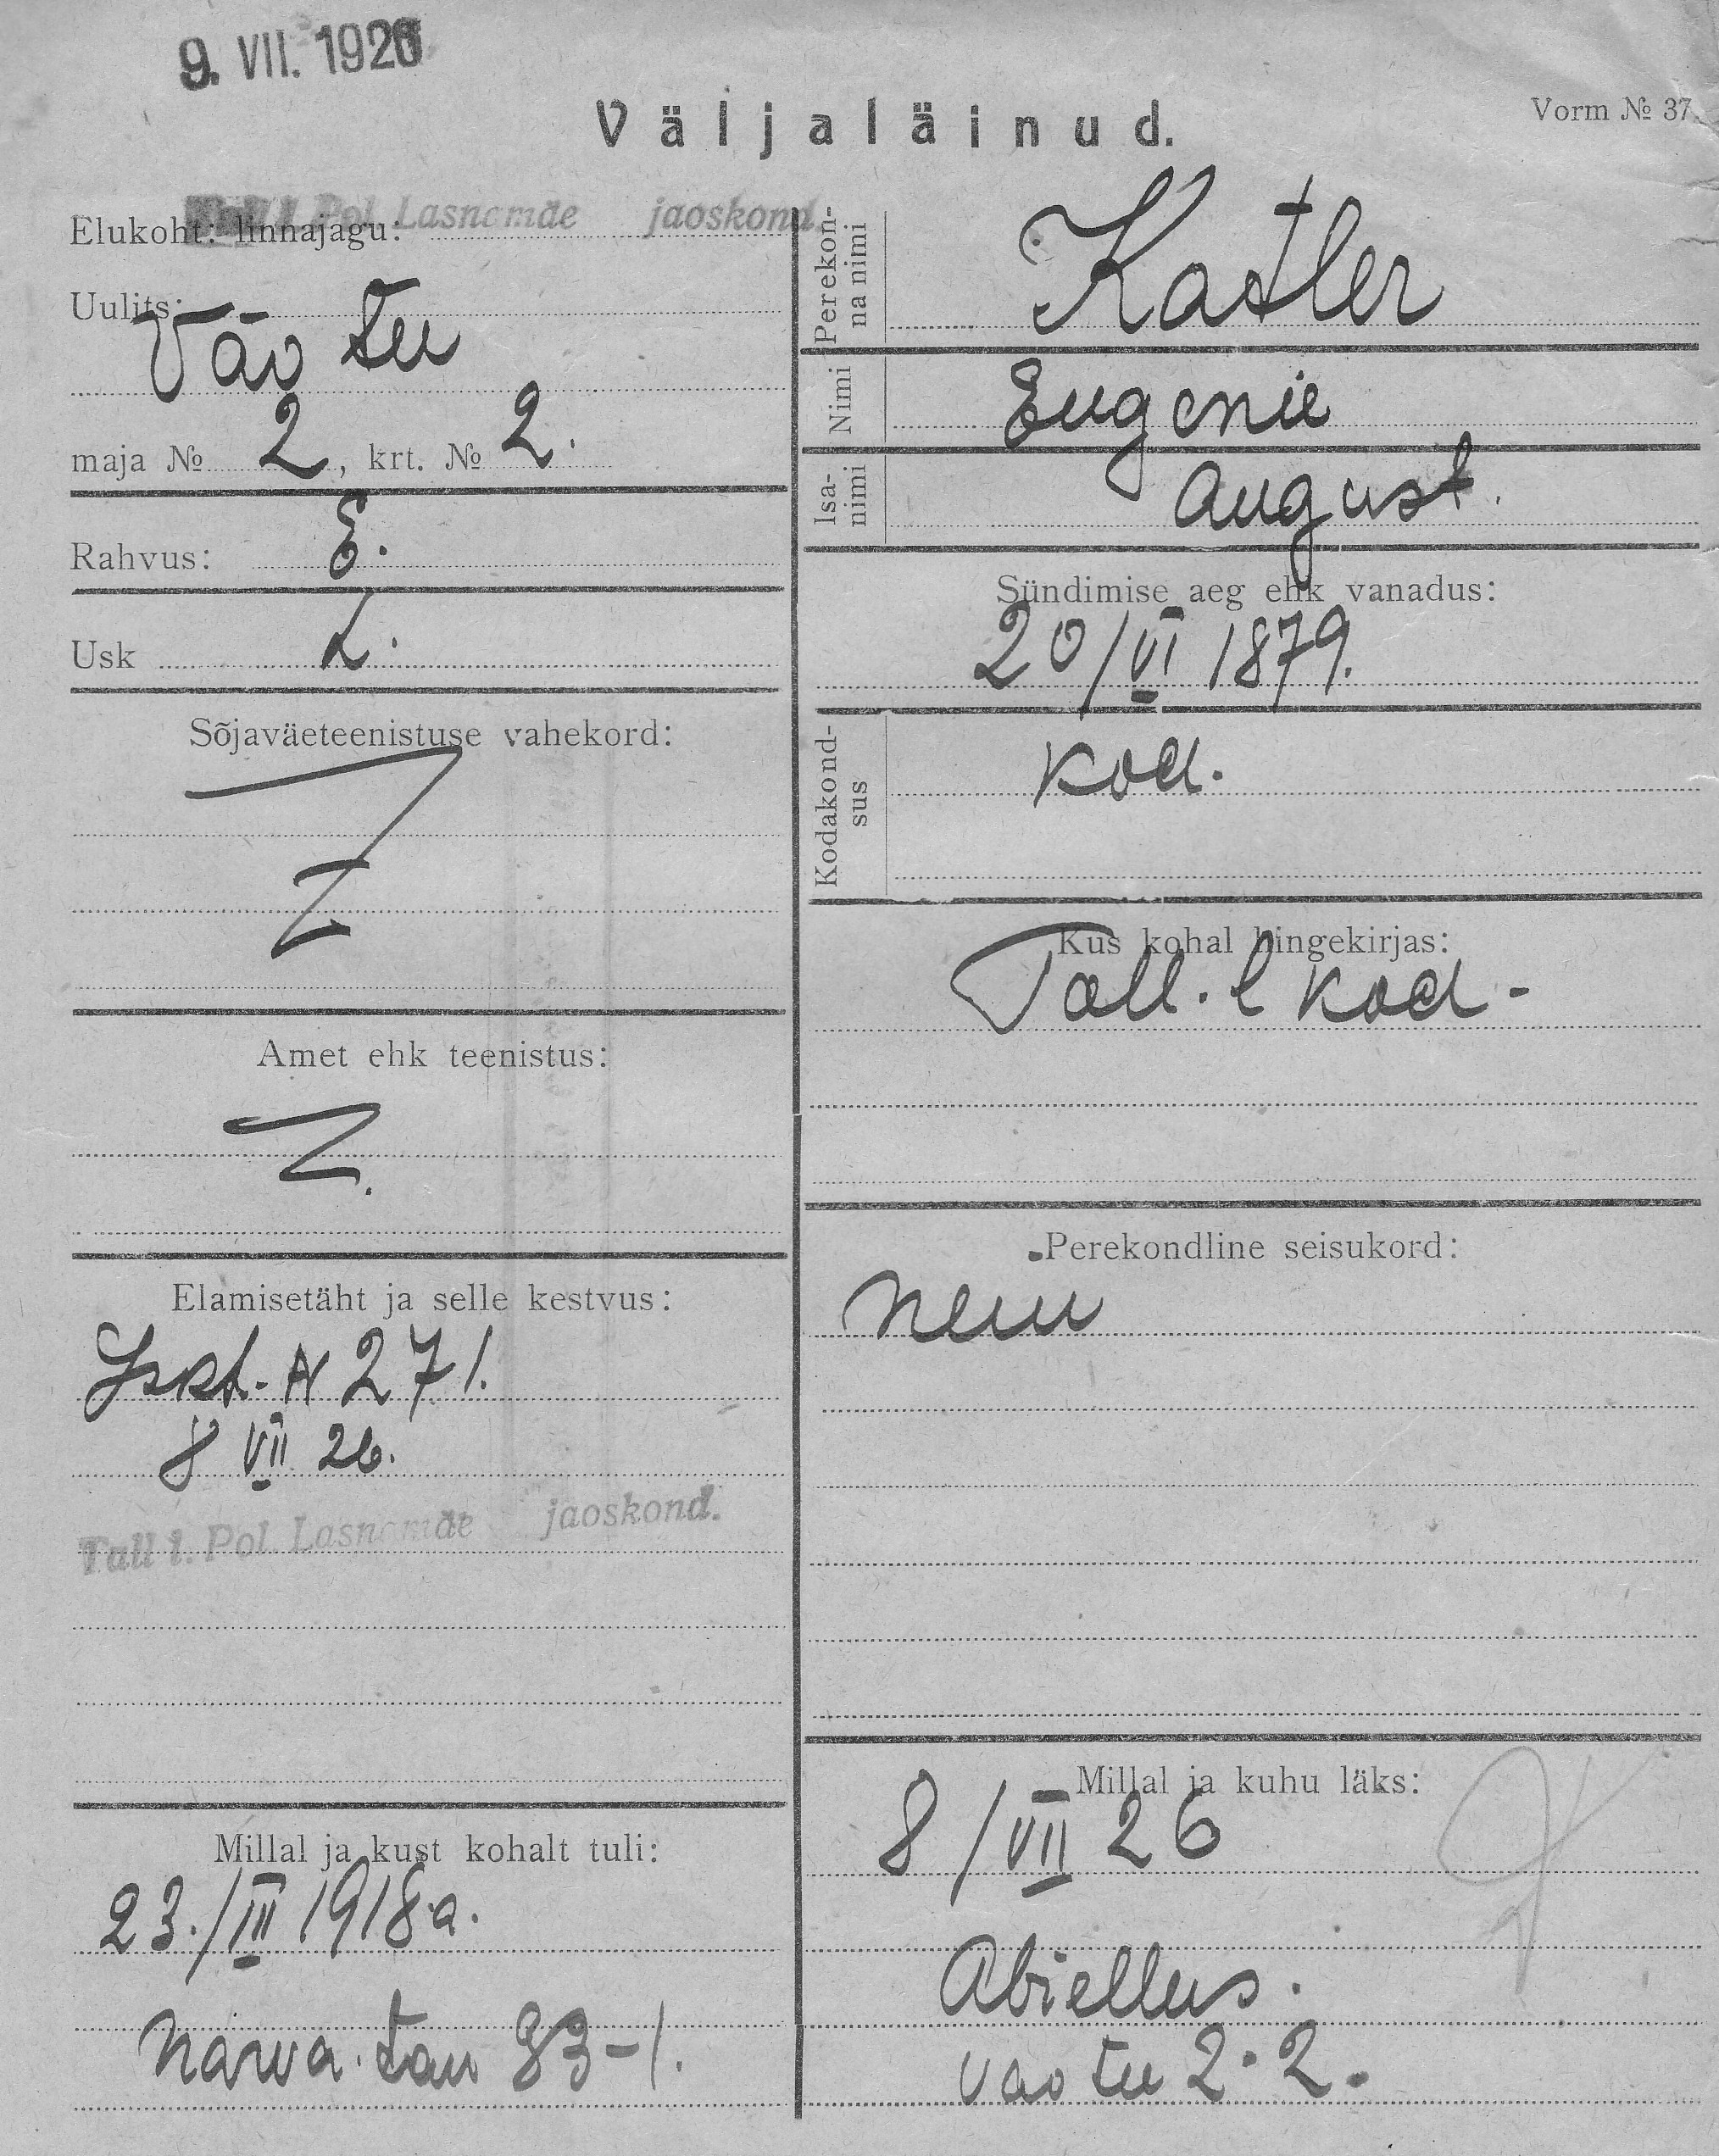 9. VII. 1926
Väljaläinud.
Vorm № 37.
Elukoht: linnajagu: Tall l. Pol. Lasnamäe jaoskond.
Uulits:
Väo tee
maja № 2, krt. № 2.
Rahvus: E.
Usk L.
Sõjaväeteenistuse vahekord:
Amet ehk teenistus:
Elamisetäht ja selle kestvus:
Iskt. N 271.
8 VII 26.
Tall l. Pol. Lasnamäe jaoskond.
Millal ja kust kohalt tuli:
23./III 1918 a.
Narva. tän 83-1.
Perekonna nimi
Katler
Nimi
Eugenie
Isanimi
August.
Sündimise aeg ehk vanadus:
20/VI 1879.
Kodakondsus
kod.
Kus kohal hingekirjas:
Tall. l kod-
Perekondline seisukord:
Millal ja kuhu läks:
8/VII 26
Abiellus.
Vao tee 2-2.